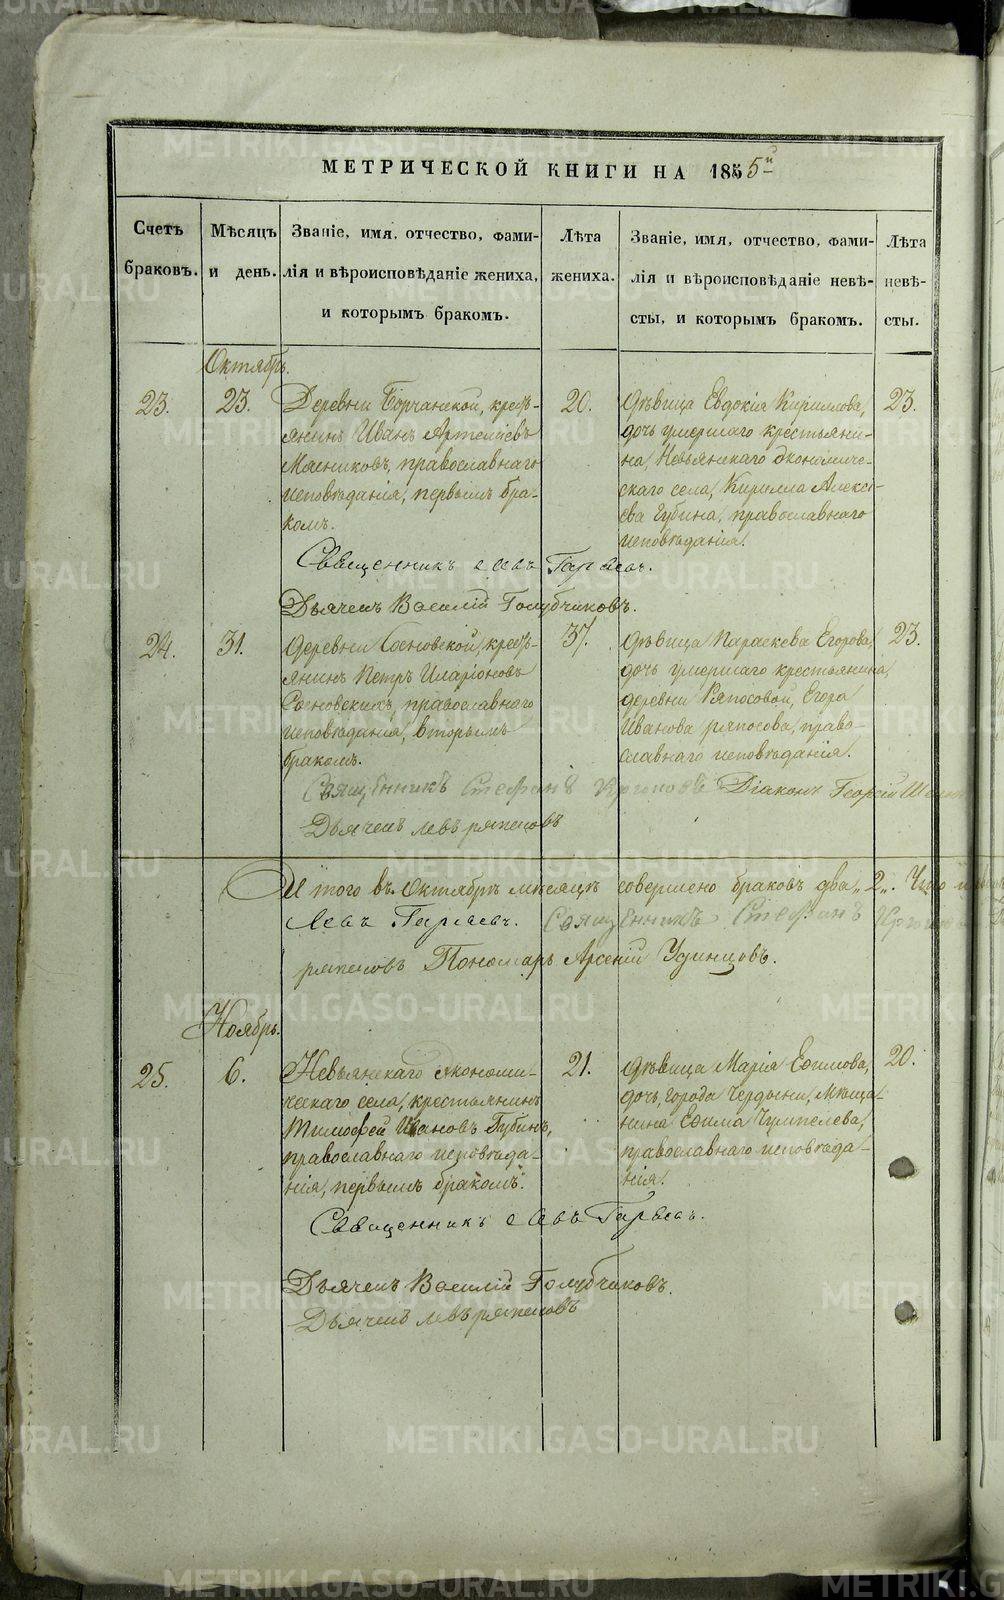 МЕТРИЧЕСКОЙ КНИГИ НА 1855й
Счетъ браковъ.
Мѣсяцъ и день.
Званіе, имя, отчество, фами-
лія и вѣроисповѣданіе жениха,
и которымъ бракомъ.
Лѣта жениха.
Званіе, имя, отчество, фами-
лія и вѣроисповѣданіе невѣ-
сты, и которымъ бракомъ.
Лѣта невѣ-
сты.
Октябрь.
23.
23.
Деревни Борчанской, кресть-
янинъ Иванъ Артемьевъ
Мясниковъ, православнаго
исповѣданія, первымъ бра-
комъ.
20.
Дѣвица Евдокія Кирилова,
дочь умершаго крестьяни-
на, Невьянскаго экономиче-
скаго села, Кирилла Алексѣ-
ева Губина, православнаго
исповѣданія.
23.
Священникъ Левъ
Дьячекъ Василій Голубчиковъ.
24.
31.
Деревни Сосновской, кресть-
янинъ Петръ Иларіоновъ
Сосновскихъ, православнаго
исповѣданія, вторымъ
бракомъ.
37.
Дѣвица Параскева Егорова,
дочь умершаго крестьянина,
деревни Ряпосовой, Егора
Иванова Ряпосова, право-
славнаго исповѣданія.
23.
Священникъ Стефанъ Діаконъ Георгій
Дьячекъ Левъ Ряпосовъ
Итого въ Октябрѣ мѣсяцѣ совершено браковъ два „2„. Что
Левъ Священникъ Стефанъ
Ряпосовъ Пономарь Арсеній Удинцовъ.
Ноябрь.
25.
6.
Невьянскаго экономи-
ческаго села, крестьянинъ
Тимофей Ивановъ Губинъ,
православнаго исповѣда-
нія, первымъ бракомъ.
21.
Дѣвица Марія Ефимова,
дочь, города Чердыни, мѣща-
нина Ефима Чумпелева,
православнаго исповѣда-
нія.
20.
Священникъ Левъ
Дьячекъ Василій Голубчиковъ.
Дьячекъ Левъ Ряпосовъ
METRIKI.GASO-URAL.RU